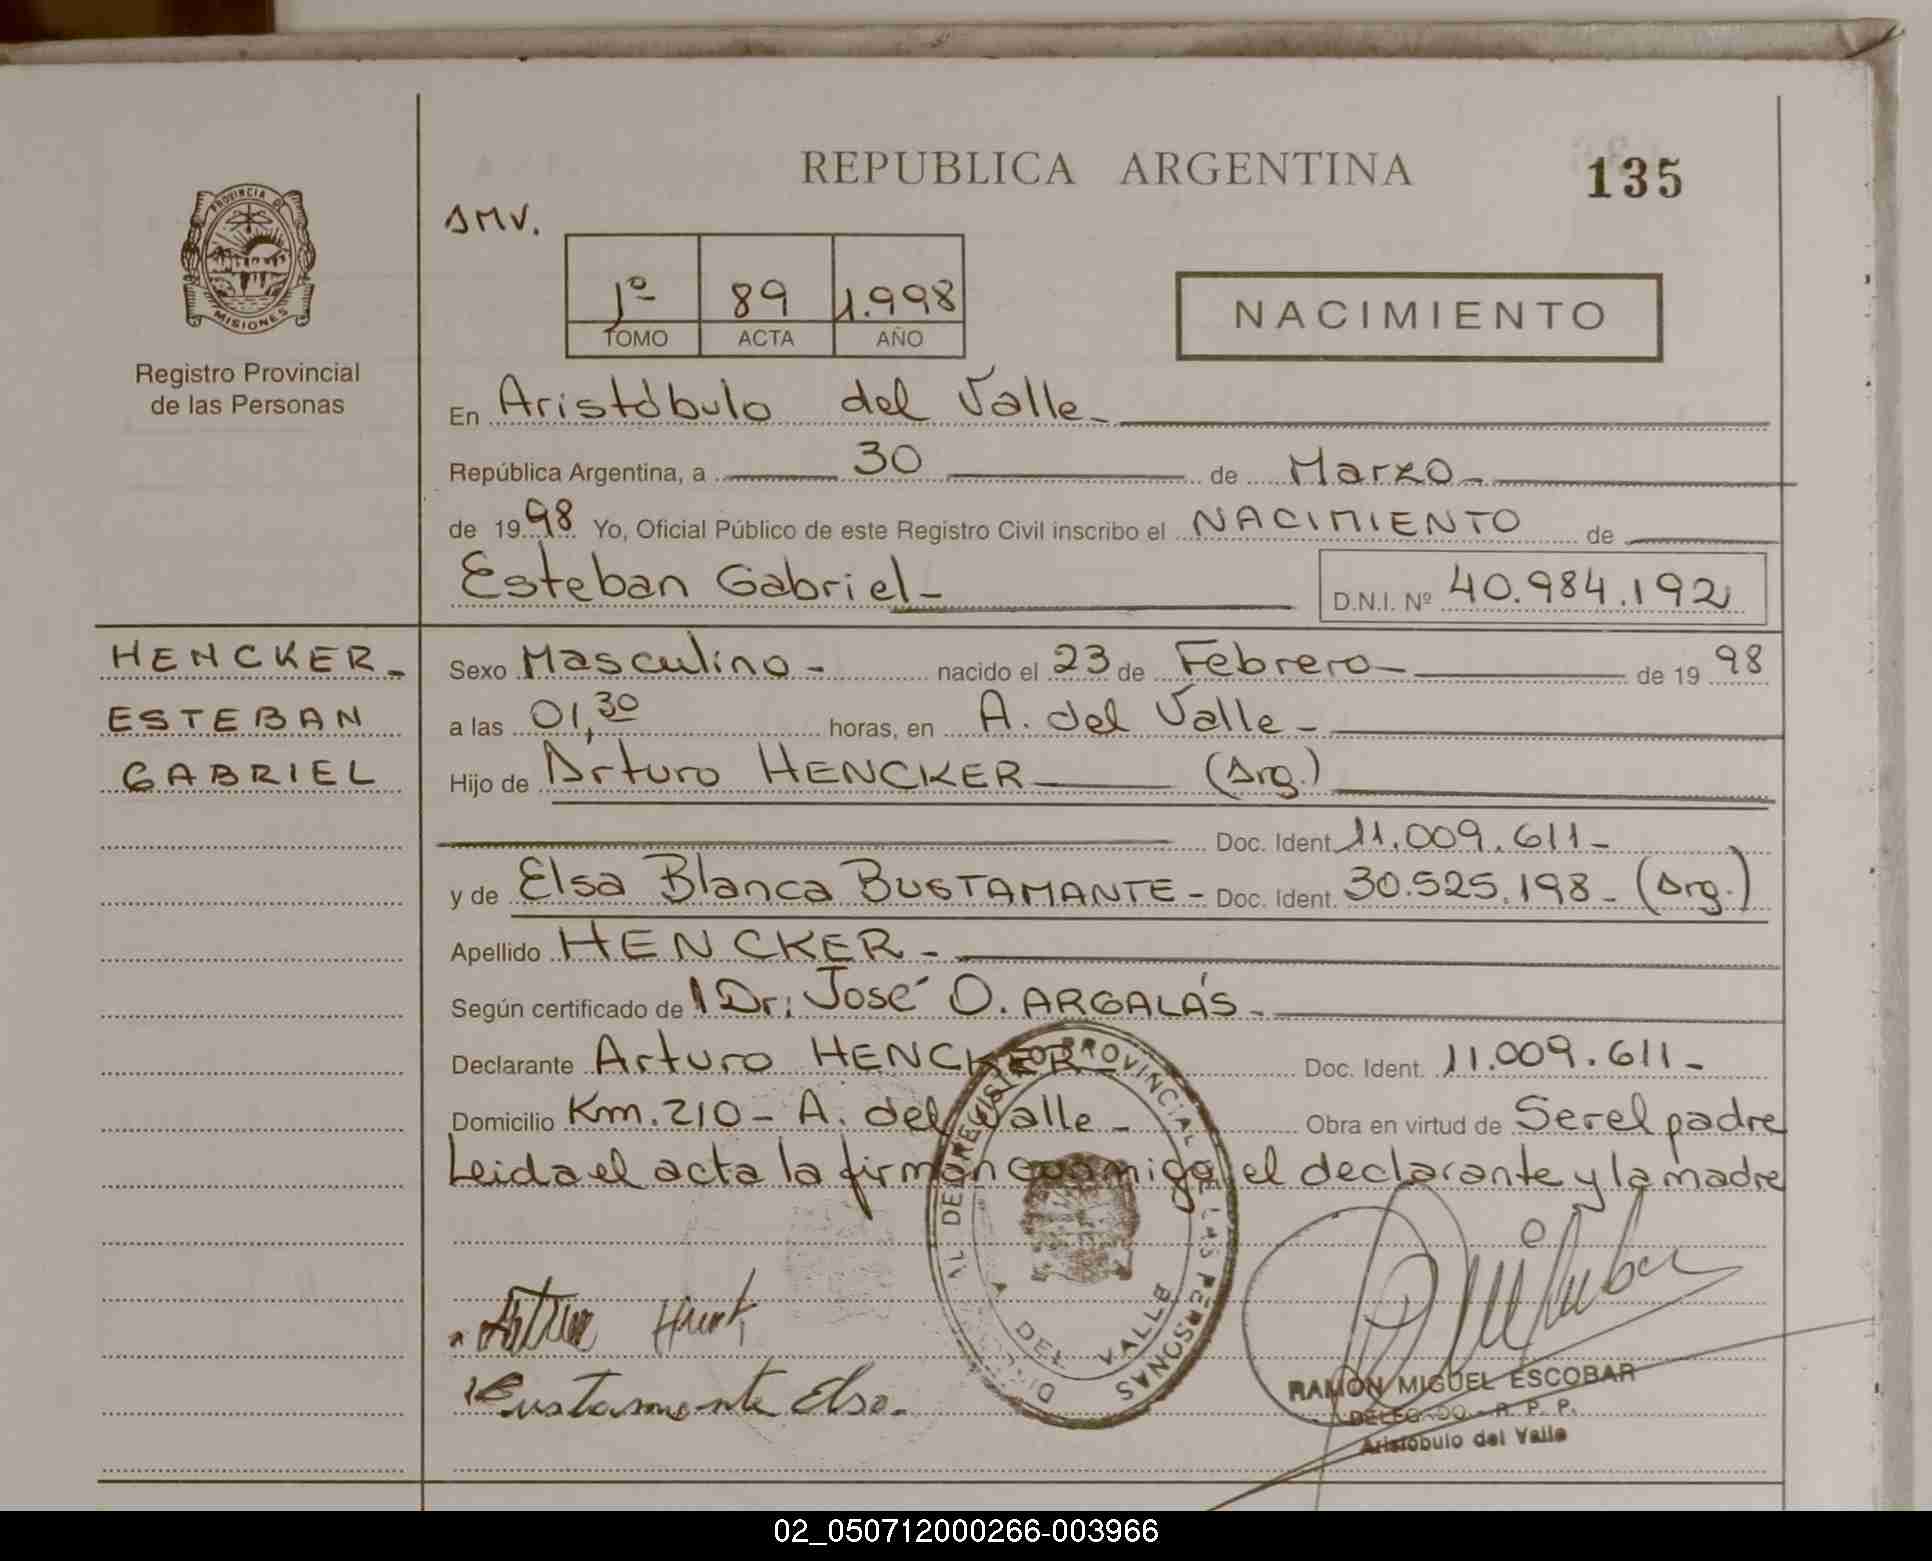 REPUBLICA ARGENTINA
135
PROVINCIA DE
MISIONES
Registro Provincial
de las Personas
AMV.
1º 89 1.998
TOMO ACTA AÑO
NACIMIENTO
En Aristóbulo del Valle
República Argentina, a 30 de Marzo
de 1998 Yo, Oficial Público de este Registro Civil inscribo el NACIMIENTO de
Esteban Gabriel
D.N.I. Nº 40.984.192
HENCKER
ESTEBAN
GABRIEL
Sexo Masculino nacido el 23 de Febrero de 19 98
a las 01,30 horas, en A. del Valle
Hijo de Arturo HENCKER (Arg.)
Doc. Ident. 11.009.611
y de Elsa Blanca BUSTAMANTE Doc. Ident. 30.525.198 (Arg.)
Apellido HENCKER
Según certificado de Dr: José O. ARGALÁS
Declarante Arturo HENCKER Doc. Ident. 11.009.611
Domicilio Km. 210 - A. del Valle Obra en virtud de Ser el padre
Leida el acta la firman conmigo el declarante y la madre
DEL REGISTRO PROVINCIAL DE LAS PERSONAS
A DEL VALLE
Bustamante Elsa
RAMON MIGUEL ESCOBAR
DELEGADO - R. P. P.
Aristobulo del Valle
02_050712000266-003966